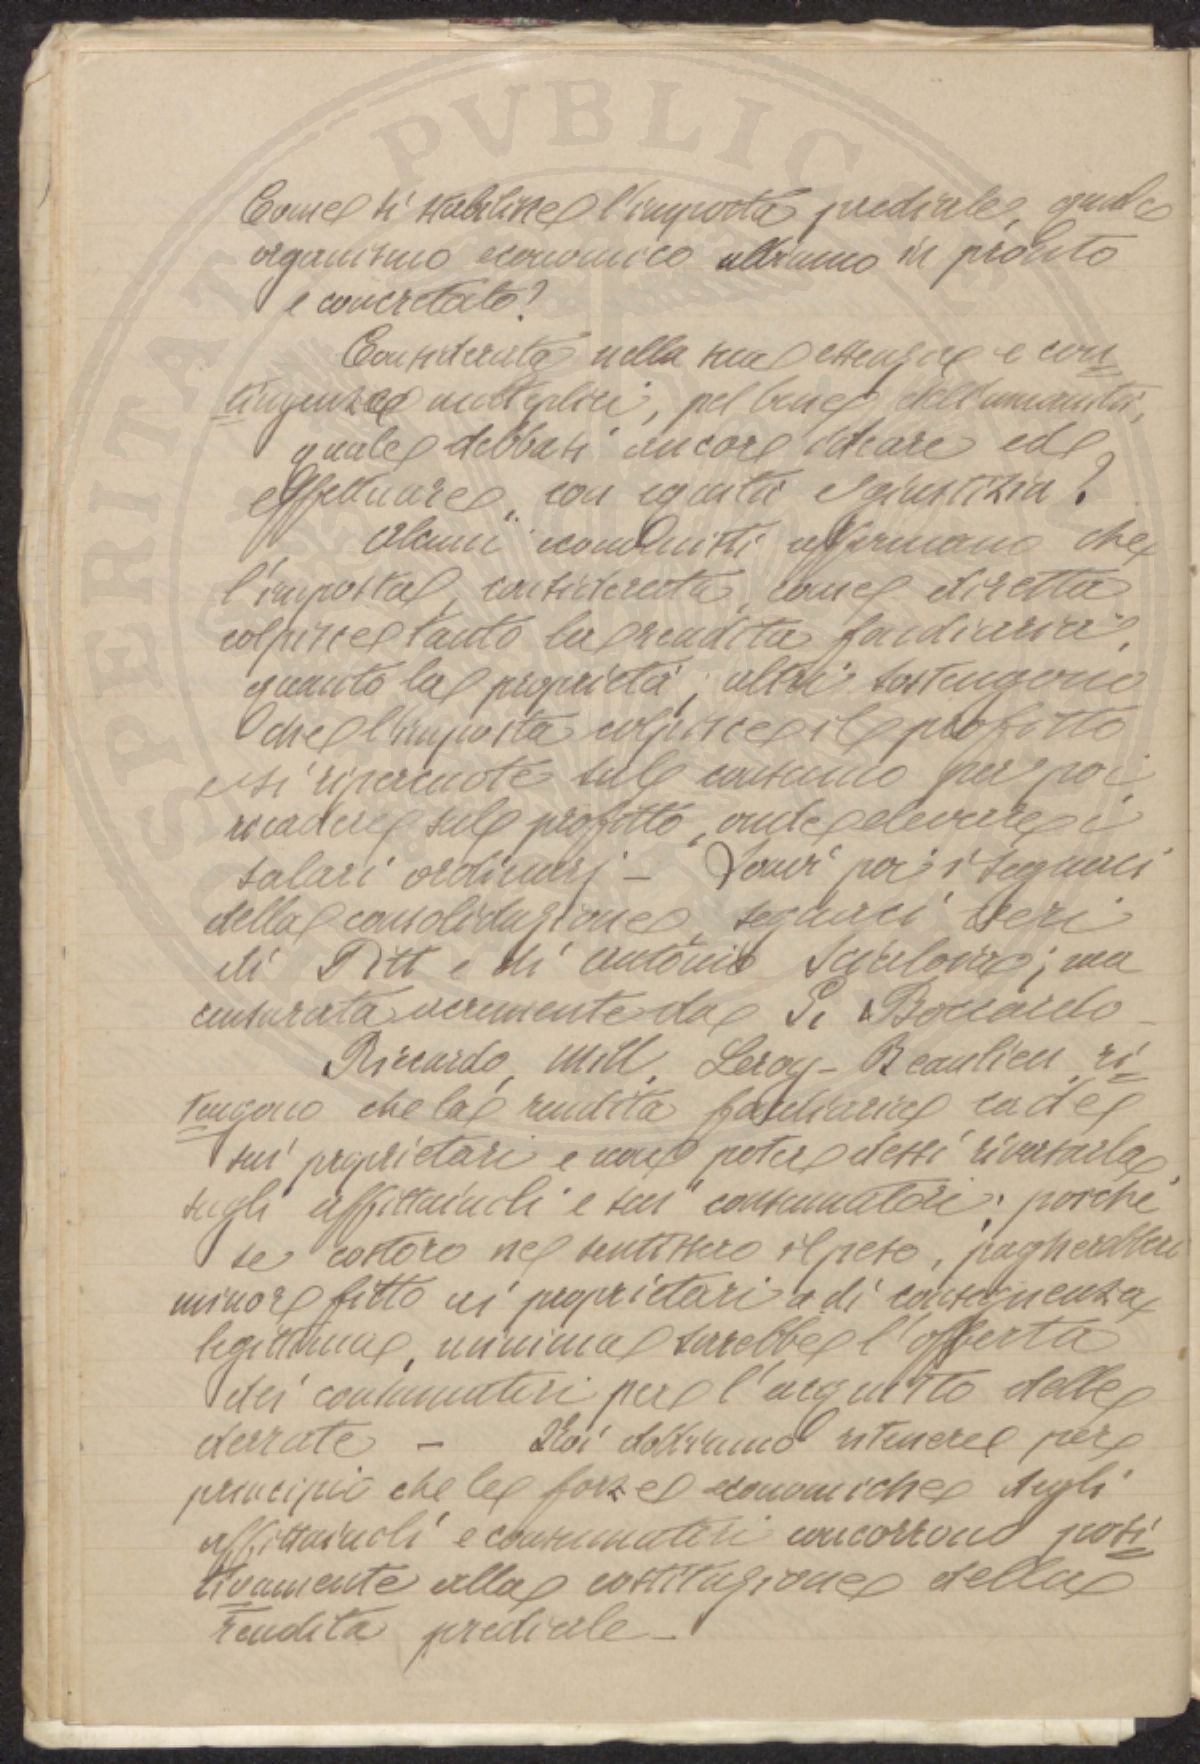 PUBLICAE
PROSPERITATIS
Come si stabilisce l'imposta prediale, quale
organismo economico abbiamo in pronto
e concretato?
Considerata nella sua essenza e con=
tingenze molteplici, pel bene dell'umanità,
quale debbasi ancora ideare ed
effettuare, con equità e giustizia?
Alcuni economisti affermano che
l'imposta, considerata come diretta
colpisce tanto la rendita fondiaria,
quanto la proprietà; altri sostengono
che l'imposta colpisce il profitto
e si ripercuote sul consumo per poi
ricadere sul profitto, onde elevare i
salari ordinarj - Sonvi poi i seguaci
della consolidazione, seguaci veri
di Pitt e di Antonio Scialoia; ma
censurata acremente da G. Boccardo -
Riccardo, Mill, Leroy-Beaulieu ri=
tengono che la rendita fondiaria cade
sui proprietari e non potere dessi riversarla
sugli affittaiuoli e sui consumatori; poiché
se costoro ne sentissero il peso, pagherebbero
minore fitto ai proprietari e di conseguenza
legittima, minima sarebbe l'offerta
dei consumatori per l'acquisto delle
derrate - Noi dobbiamo ritenere per
principio che le forze economiche degli
affittaiuoli e consumatori concorrono posi=
tivamente alla costituzione della
rendita prediale -